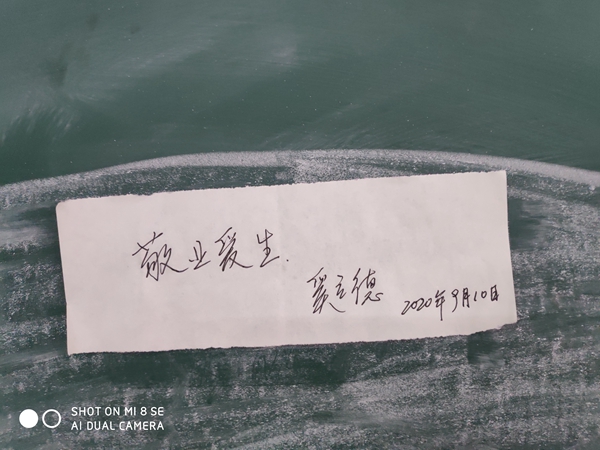 敬业爱生.
2020年9月10日
SHOT ON MI 8 SE
AI DUAL CAMERA